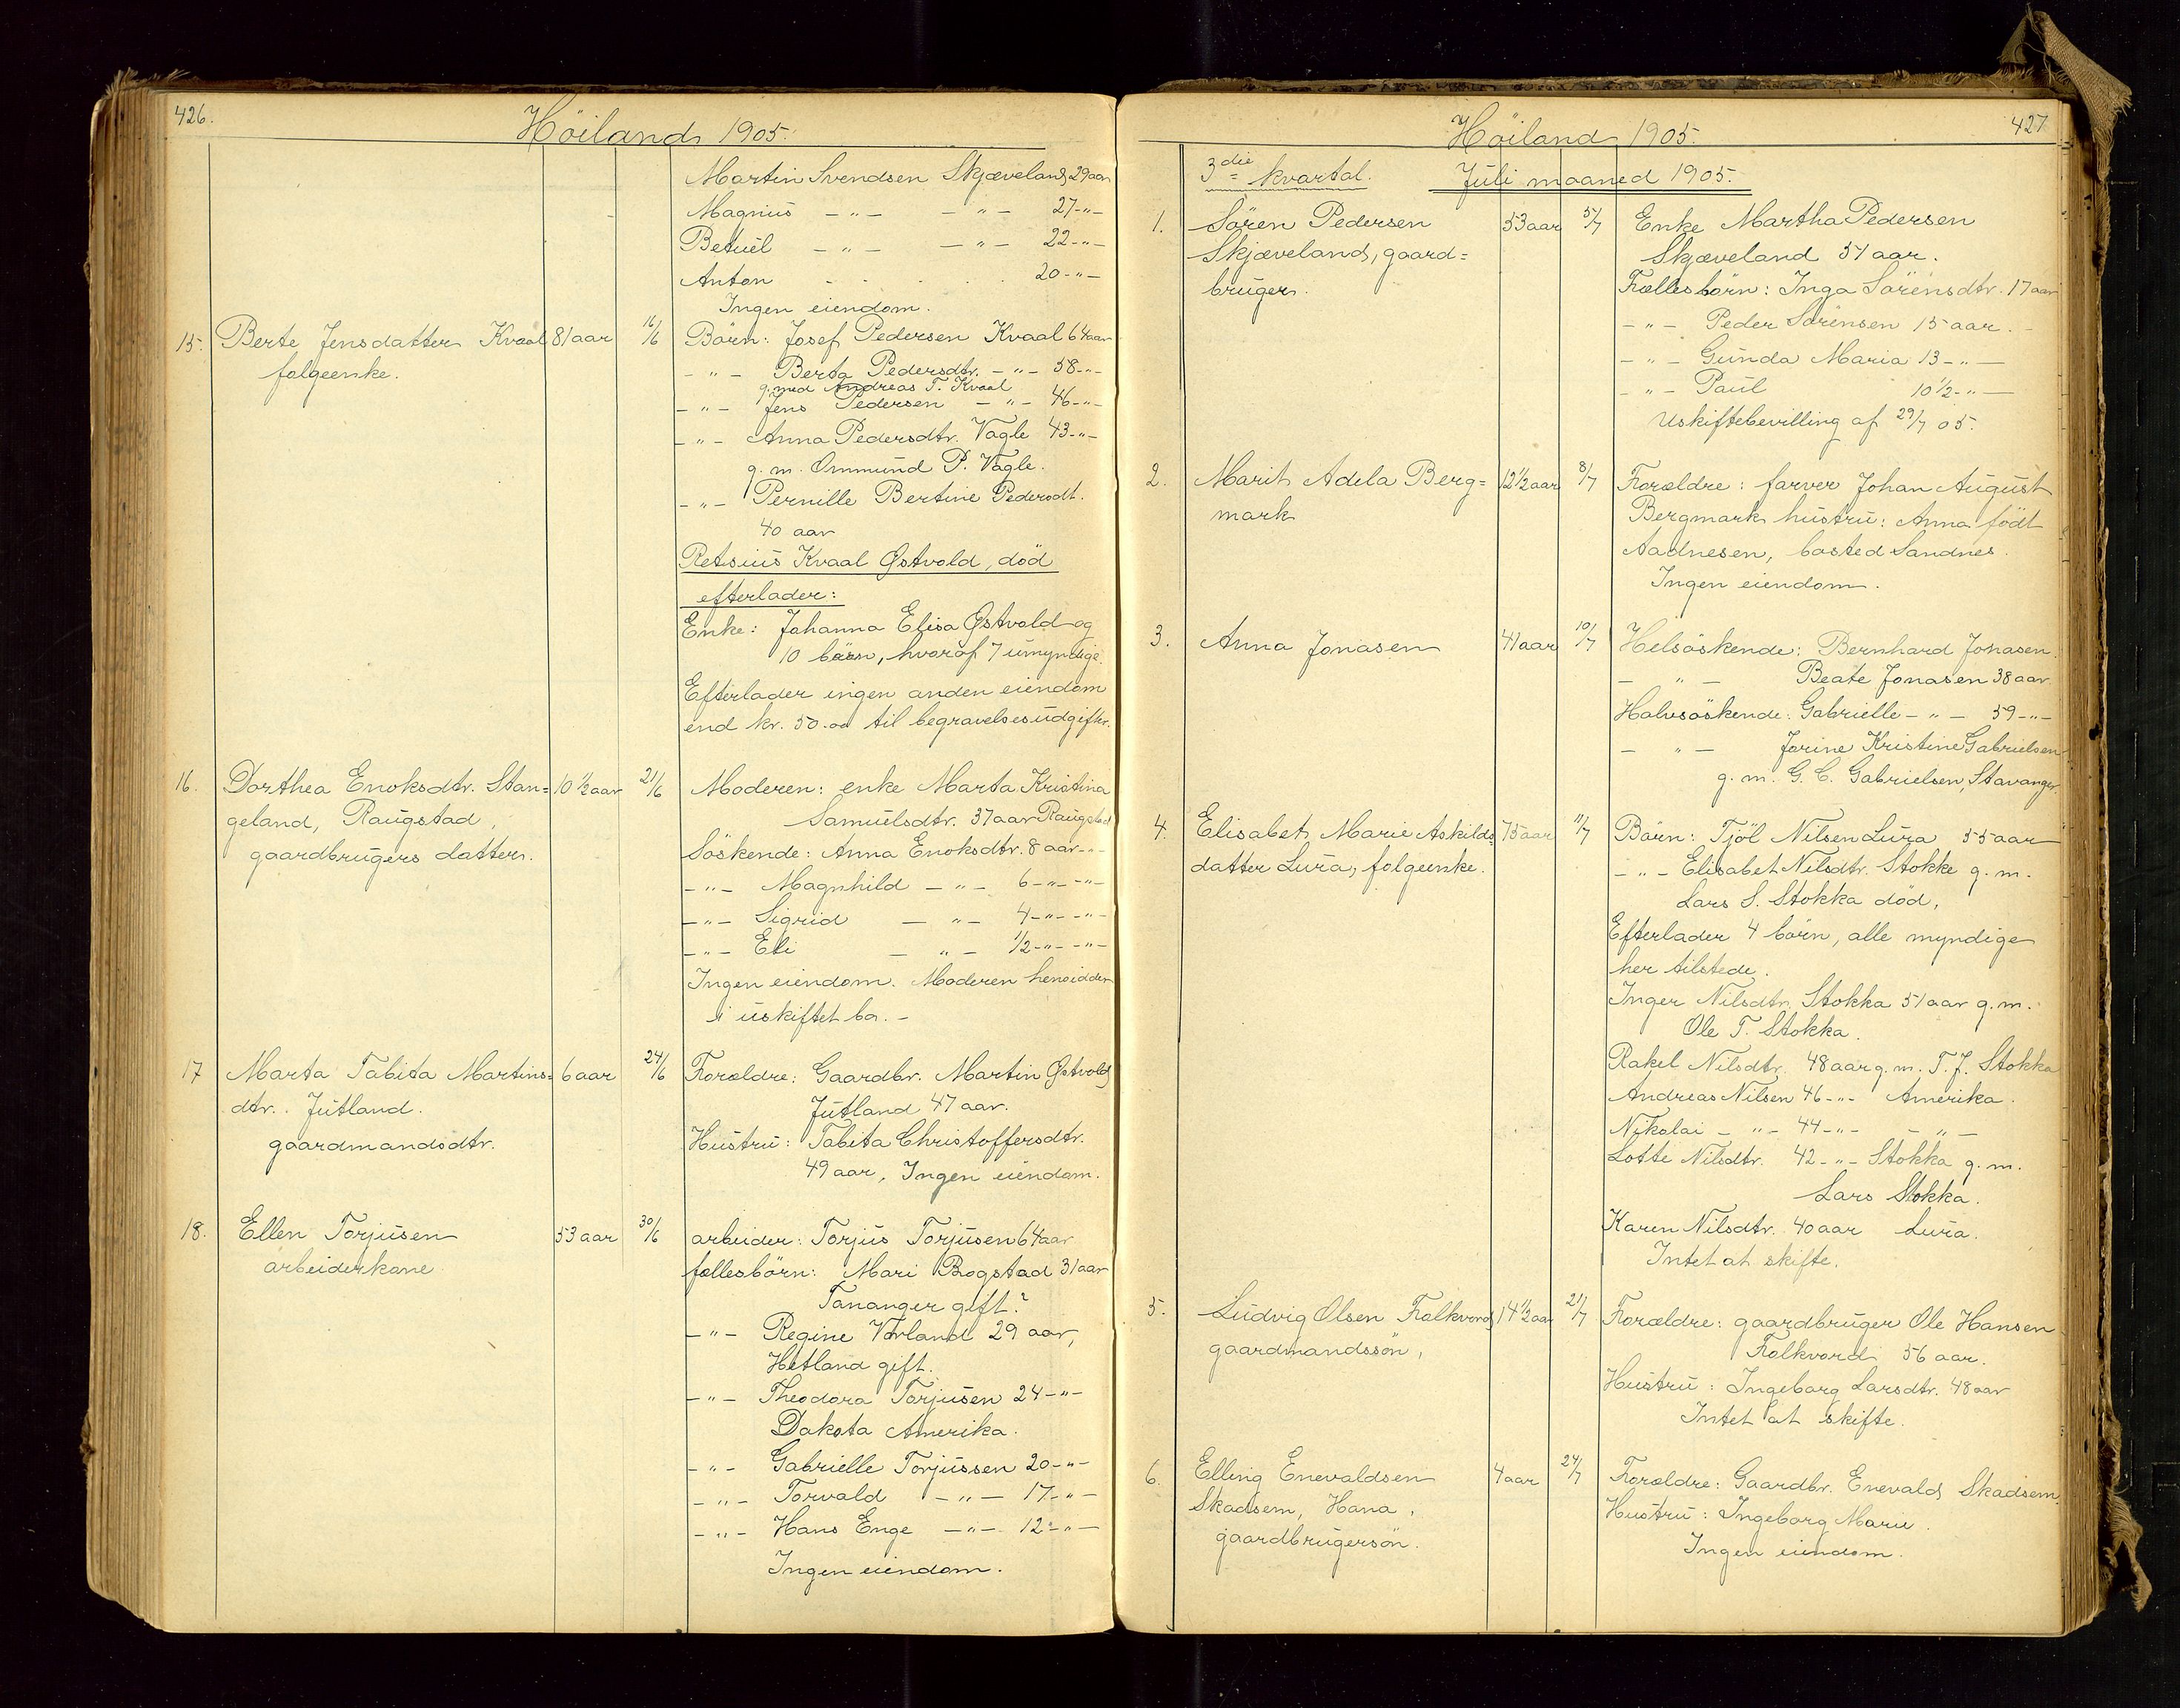 426.
Höiland 1905
Martin Svendsen Skjæveland 29 aar
Magnus - " - - " - 27 - " -
Betuel - " - - " - 22 - " -
Anton . . . . . 20 - " -
Ingen eiendom.
15. Berte Jensdatter Kvaal 81 aar 16/6 Börn: Josef Pedersen Kvaal 64 aar
folgeenke. - " - Berta Pedersdtr. - " - 58 - " -
g. med Andreas T. Kvaal
- " - Jens Pedersen - " - 46 - " -
- " - Anna Pedersdtr. Vagle 43 - " -
g. m. Ommund P. Vagle.
- " - Pernille Bertine Pedersdt.
40 aar
Retsius Kvaal Østvold, död
efterlader:
Enke: Johanna Elisa Østvold og
10 börn, hvoraf 7 umyndige.
Efterlader ingen anden eiendom
end kr. 50.00 til begravelsesudgifter.
16. Dorthea Enoksdtr. Stan= 10 1/2 aar 21/6 Moderen: enke Marta Kristina
geland, Raugstad, Samuelsdtr. 37 aar Raugstad
gaardbrugers datter. Söskende: Anna Enoksdtr. 8 aar - " -
- " - Magnhild - " - 6 - " - - " -
- " - Sigrid - " - 4 - " - - " -
- " - Eli - " - 1/2 - " - - " -
Ingen eiendom. Moderen hensidder
i uskiftet bo. -
17 Marta Tabita Martins= 6 aar 24/6 Forældre: Gaardbr. Martin Østvold
dtr. Jutland. Jutland 47 aar.
gaardmandsdtr. Hustru: Tabita Christoffersdtr.
49 aar, Ingen eiendom.
18. Ellen Torjusen 53 aar 30/6 arbeider: Torjus Torjusen 64 aar
arbeiderkone fællesbörn: Mari Bogstad 31 aar
Tananger gift?
- " - Regine Vorland 29 aar,
Hetland gift.
- " - Theodora Torjusen 24 - " -
Dakota Amerika.
- " - Gabrielle Torjussen 20 - " -
- " - Torvald - " - 17 - " -
- " - Hans Enge - " - 12 - " -
Ingen eiendom.
427
Höiland 1905.
3die kvartal. Juli maaned 1905.
1. Sören Pedersen 53 aar 5/7 Enke Martha Pedersen
Skjæveland, gaard= Skjæveland 51 aar.
bruger. Fællesbörn: Inga Sörensdtr. 17 aar
- " - Peder Sörensen 15 aar. -
- " - Gunda Maria 13 - " -
- " - Paul 10 1/2 - " -
Uskiftebevilling af 29/7 05.
2. Marit Adela Berg= 12 1/2 aar 8/7 Forældre: farver Johan August
mark Bergmark hustru: Anna födt
Aadnesen, bosted Sandnes.
Ingen eiendom.
3. Anna Jonasen 41 aar 10/7 Helsöskende: Bernhard Jonasen.
- " - Beate Jonasen 38 aar
Halvsöskende: Gabrielle - " - 59 - " -
- " - Jorine Kristine Gabrielsen
g. m. G. C. Gabrielsen, Stavanger.
4. Elisabet Marie Askilds= 75 aar 11/7 Börn: Tjöl Nilsen Lura 55 aar
datter Lura, folgeenke. - " - Elisabet Nilsdtr. Stokke g. m.
Lars S. Stokka död,
Efterlader 4 börn, alle myndige
her tilstede.
Inger Nilsdtr. Stokka 51 aar g. m.
Ole T. Stokka.
Rakel Nilsdtr. 48 aar g. m. T. J. Stokka
Andreas Nilsen 46 - " - Amerika.
Nikolai - " - 44 - " - - " -
Lotte Nilsdtr. 42 - " - Stokka g. m.
Lars Stokka.
Karen Nilsdtr. 40 aar Lura.
Intet at skifte.
5. Ludvig Olsen Folkvord 14 1/2 aar 21/7 Forældre: gaardbruger Ole Hansen
gaardmandssön, Folkvord 56 aar.
Hustru: Ingeborg Larsdtr. 48 aar
Intet at skifte.
6. Elling Enevaldsen 4 aar 24/7 Forældre: Gaardbr. Enevald Skadsem.
Skadsem, Hana, Hustru: Ingeborg Marie.
gaardbrugersön. Ingen eiendom.